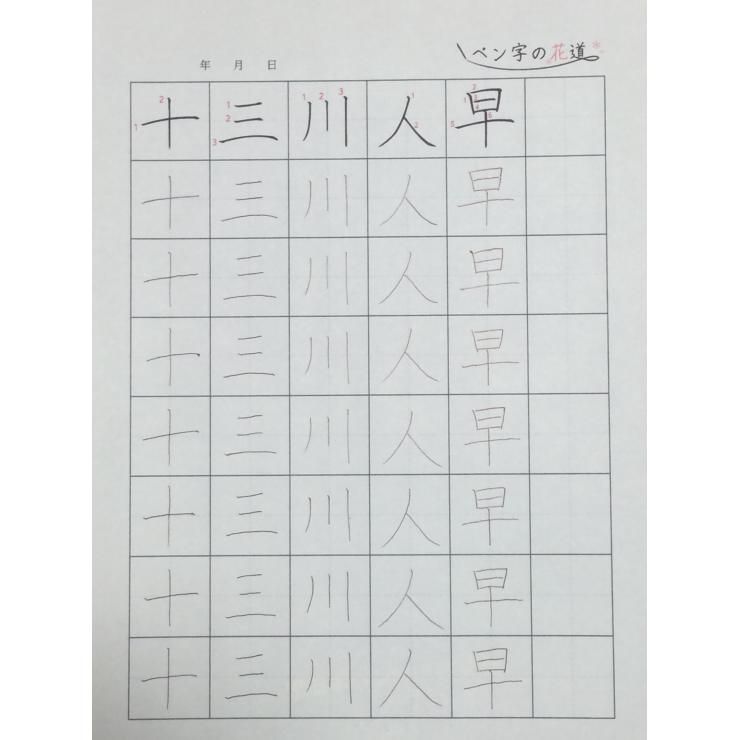 ペン字の花道
年 月 日
十 三 川 人 早
十 三 川 人 早
十 三 川 人 早
十 三 川 人 早
十 三 川 人 早
十 三 川 人 早
十 三 川 人 早
十 三 川 人 早